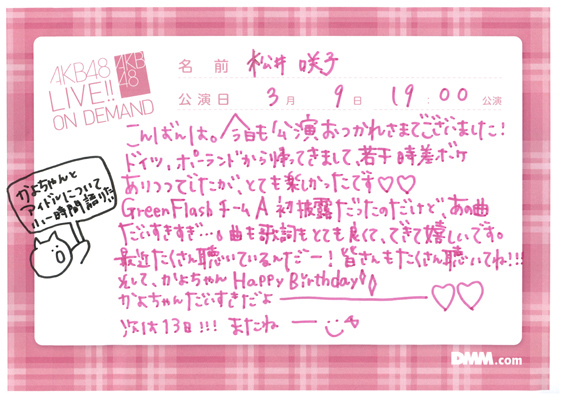 AKB48
LIVE!!
ON DEMAND
AKB
48
名前 松井 咲子
公演日 3月 9日 19:00 公演
こんばんは。今日も公演おつかれさまでございました!
ドイツ、ポーランドから帰ってきまして、若干時差ボケ
ありつつでしたが、とても楽しかったです♡♡
Green FlashチームA初披露だったのだけど、あの曲
だいすきすぎ…。曲も歌詞もとても良くて、できて嬉しいです。
最近たくさん聴いているんだー!皆さんもたくさん聴いてね!!!
そして、かよちゃん Happy Birthday
かよちゃんだいすきだよ――♡♡
次は13日!!! またねー
かよちゃんと
アイドルについて
小一時間語りたい
DMM.com